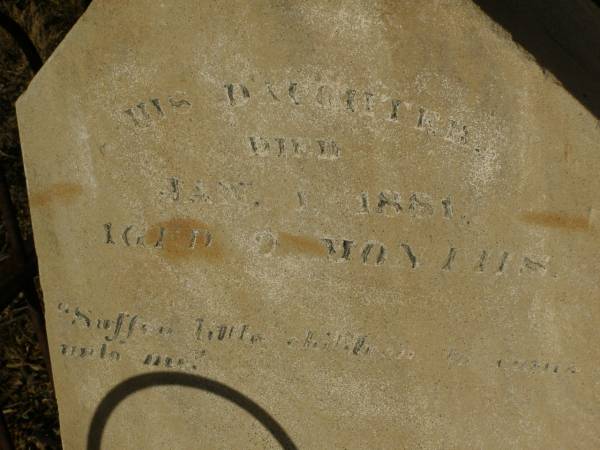 HIS DAUGHTER.
DIED
JAN. 1 1881.
AGED 9 MONTHS.
"Suffer little children to come
unto me."